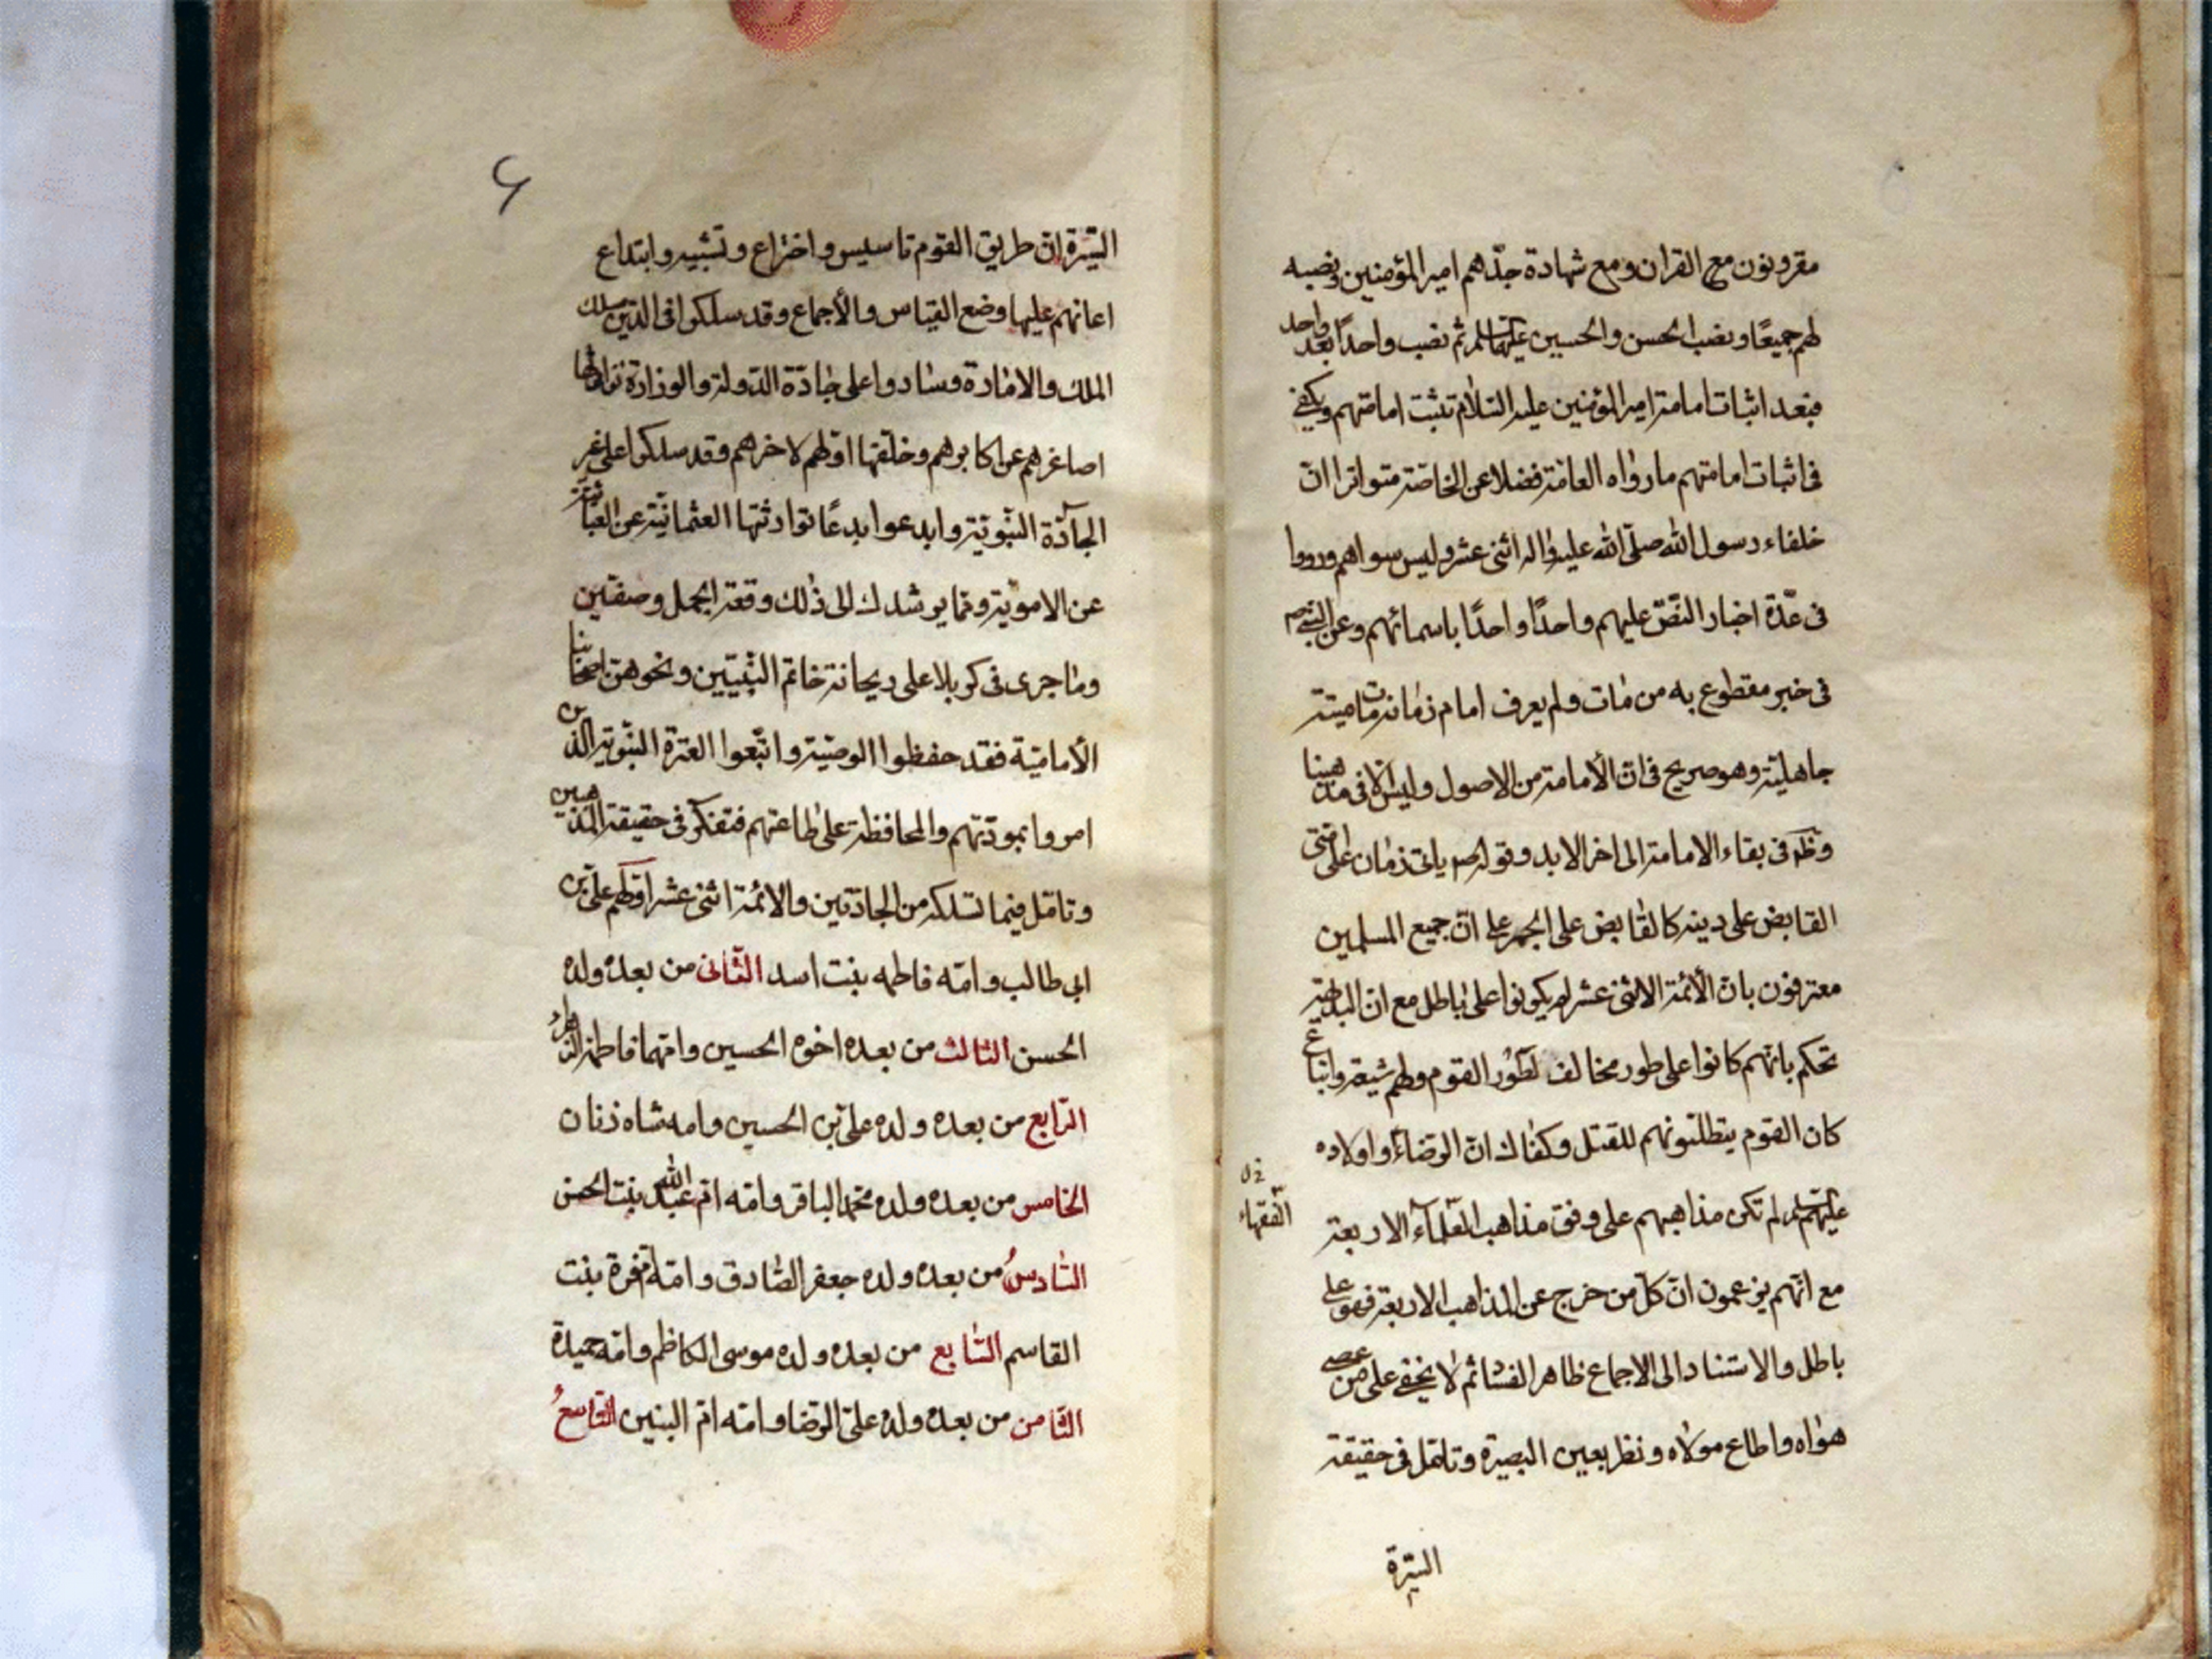 مقرونون مع القران ومع شهادة جدّهم امير المؤمنين ونصبه
لهم جميعًا ونصب الحسن والحسين عليهما السلم ثم نصب واحدًا بعد واحد
فبعد اثبات امامة امير المؤمنين عليه السّلام تثبت امامتهم ويكفى
فى اثبات امامتهم ما رواه العامّة فضلا عن الخاصّة متواترا انّ
خلفاء رسول الله صلّى الله عليه واله اثنى عشر وليس سواهم ورووا
فى عدّة اخبار النّصّ عليهم واحدًا واحدًا باسمائهم وعن النبى ص
فى خبر مقطوع به من مات ولم يعرف امام زمانه مات ميتة
جاهليّة وهو صريح فى انّ الأمامة من الاصول وليس الّا فى مذهبنا
وظهر فى بقاء الامامة الى اخر الابد وقوله ص ياتى زمان على امّتى
القابض على دينه كالقابض على الجمر على انّ جميع المسلمين
معترفون بانّ الأئمّة الاثنى عشر لم يكونوا على باطل مع ان البديهة
تحكم بانّهم كانوا على طور مخالف لطور القوم ولهم شيعة واتباع
كان القوم يتطلّبونهم للقتل وكفاك انّ الرّضا ع واولاده
عليهم السلم لم تكن مذاهبهم على وفق مذاهب العلمآء الاربعة
الفقهاء
مع انّهم يزعمون انّ كلّ من خرج عن المذاهب الاربعة فهو على
باطل والاستناد الى الاجماع ظاهر الفساد ثم لا يخفى على من عصى
هواه واطاع مولاه ونظر بعين البصيرة وتامّل فى حقيقة
السّيرة
٦
السّيرة انّ طريق القوم تاسيس واختراع وتشييد وابتداع
اعانهم عليها وضع القياس والأجماع وقد سلكوا فى الدّين مسلك
الملك والامارة وساروا على جادّة الدّولة والوزارة توارثها
اصاغرهم عن اكابرهم وخلّفها اوّلهم لاخرهم وقد سلكوا على غير
الجآدّة النّبويّة وابدعوا بدعًا توارثتها العثمانيّة عن العبّاسيّة
عن الامويّة وممّا يرشدك الى ذلك وقعة الجمل وصفّين
وما جرى فى كربلا على ريحانة خاتم النّبيّين ونحوهنّ اصحابنا
الأماميّة فقد حفظوا الوصيّة واتّبعوا العترة النّبويّة الّذين
امروا بمودّتهم والمحافظة على طاعتهم فتفكّر فى حقيقة المذهبين
وتامّل فيما تسلكه من الجادّتين والائمّة اثنى عشر اوّلهم على بن
ابى طالب وامّه فاطمه بنت اسد الثّانى من بعده ولده
الحسن الثالث من بعده اخوه الحسين وامّهما فاطمة الزّهراء
الرّابع من بعده ولده على بن الحسين وامه شاه زنان
الخامس من بعده ولده محمد الباقر وامّه امّ عبد الله بنت الحسن
السّادسُ من بعده ولده جعفر الصّادق وامّه امّ فروة بنت
القاسم السّابع من بعده ولده موسى الكاظم وامّه حميدة
الثّامن من بعده ولده علىّ الرّضا وامّه امّ البنين التّاسعُ